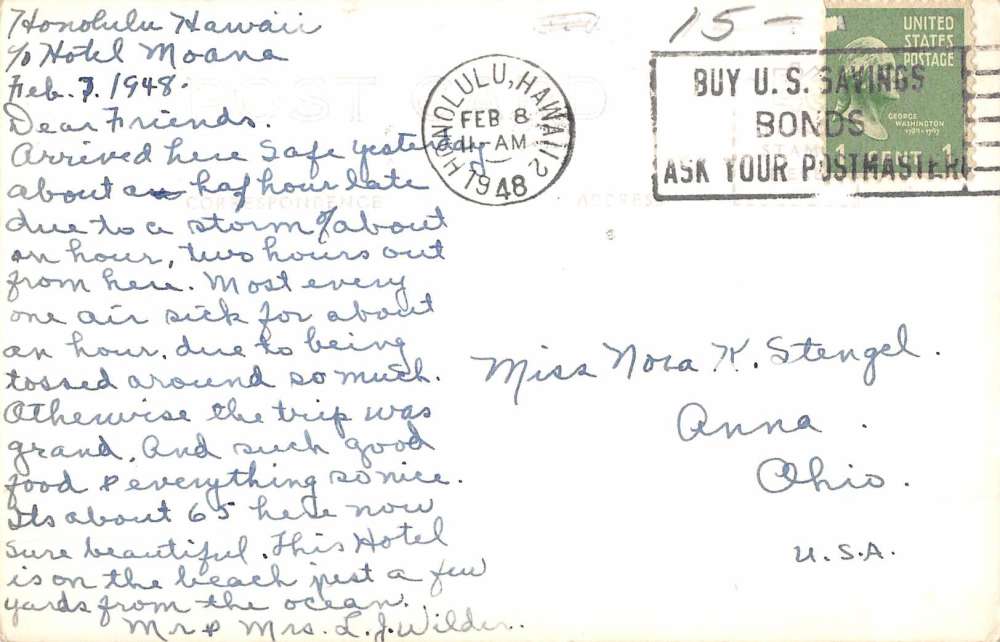 Honolulu Hawaii
c/o Hotel Moana
Feb. 7. 1948.
Dear Friends.
Arrived here safe yesterday
about a half hour late
due to a storm of about
an hour, two hours out
from here. Most every
one air sick for about
an hour, due to being
tossed around so much.
Otherwise the trip was
grand. And such good
food & everything so nice.
Its about 65 here now
sure beautiful. This Hotel
is on the beach just a few
yards from the ocean.
Mr & Mrs. L. J. Wilder.
15-
HONOLULU, HAWAII 2
FEB 8
11-AM
1948
BUY U.S. SAVINGS
BONDS
ASK YOUR POSTMASTER
UNITED
STATES
POSTAGE
GEORGE
WASHINGTON
1789-1797
1 CENT 1
POST CARD
CORRESPONDENCE
ADDRESS
Miss Nora K. Stengel.
Anna.
Ohio.
U.S.A.